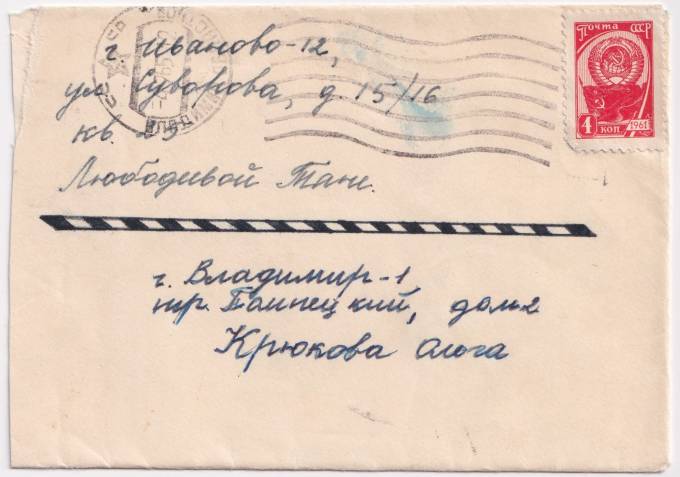 г. Иваново-12,
ул Суворова, д. 15/16
кв.
Любодиевой Тане.
г. Владимир-1
пр. дом 2
Крюкова Ольга
Почта СССР
4 коп 1961